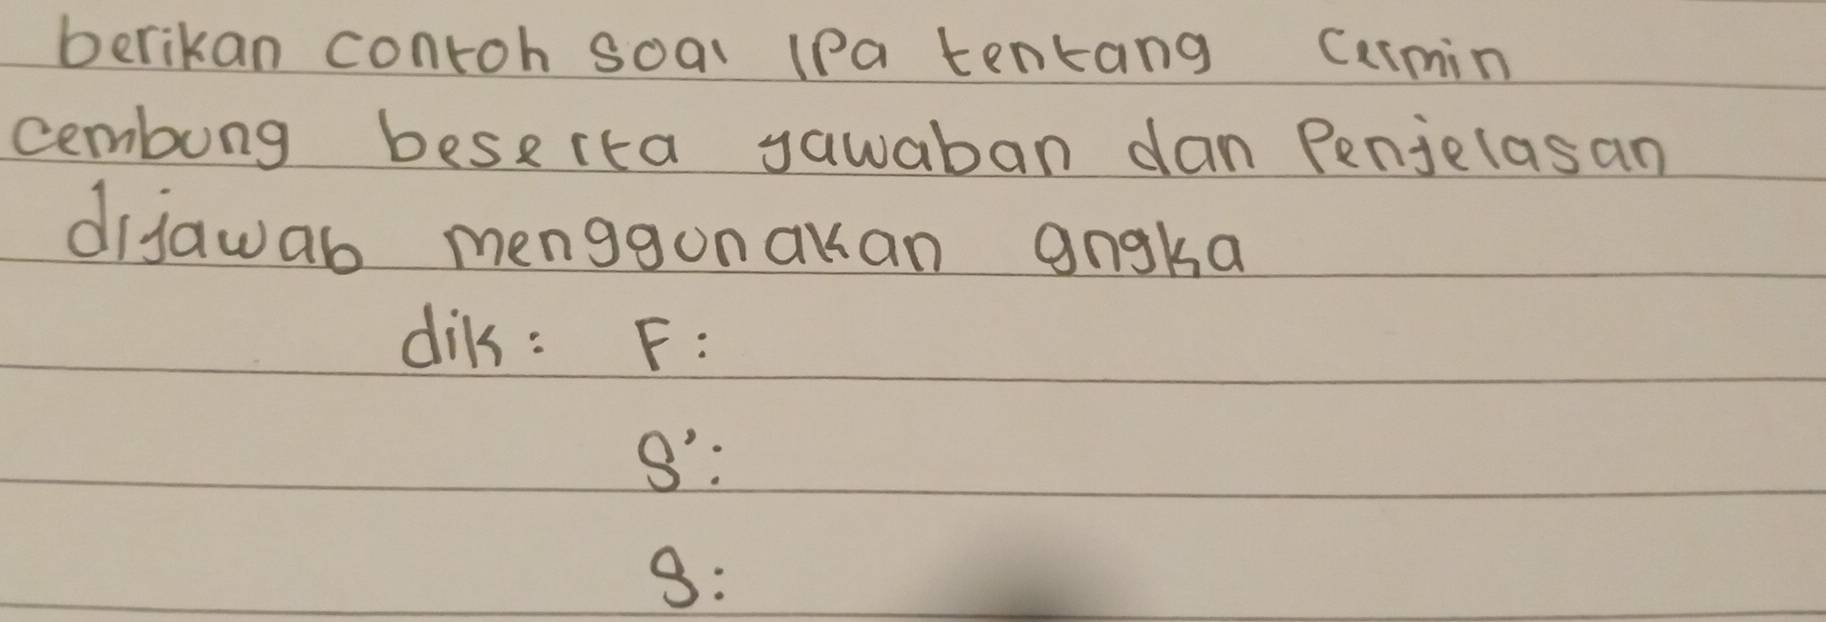 berikan contoh soal IPa tentang Cermin
cembung beserta yawaban dan Penjelasan
dijawab menggunakan angka
dik: F:
S':
S: